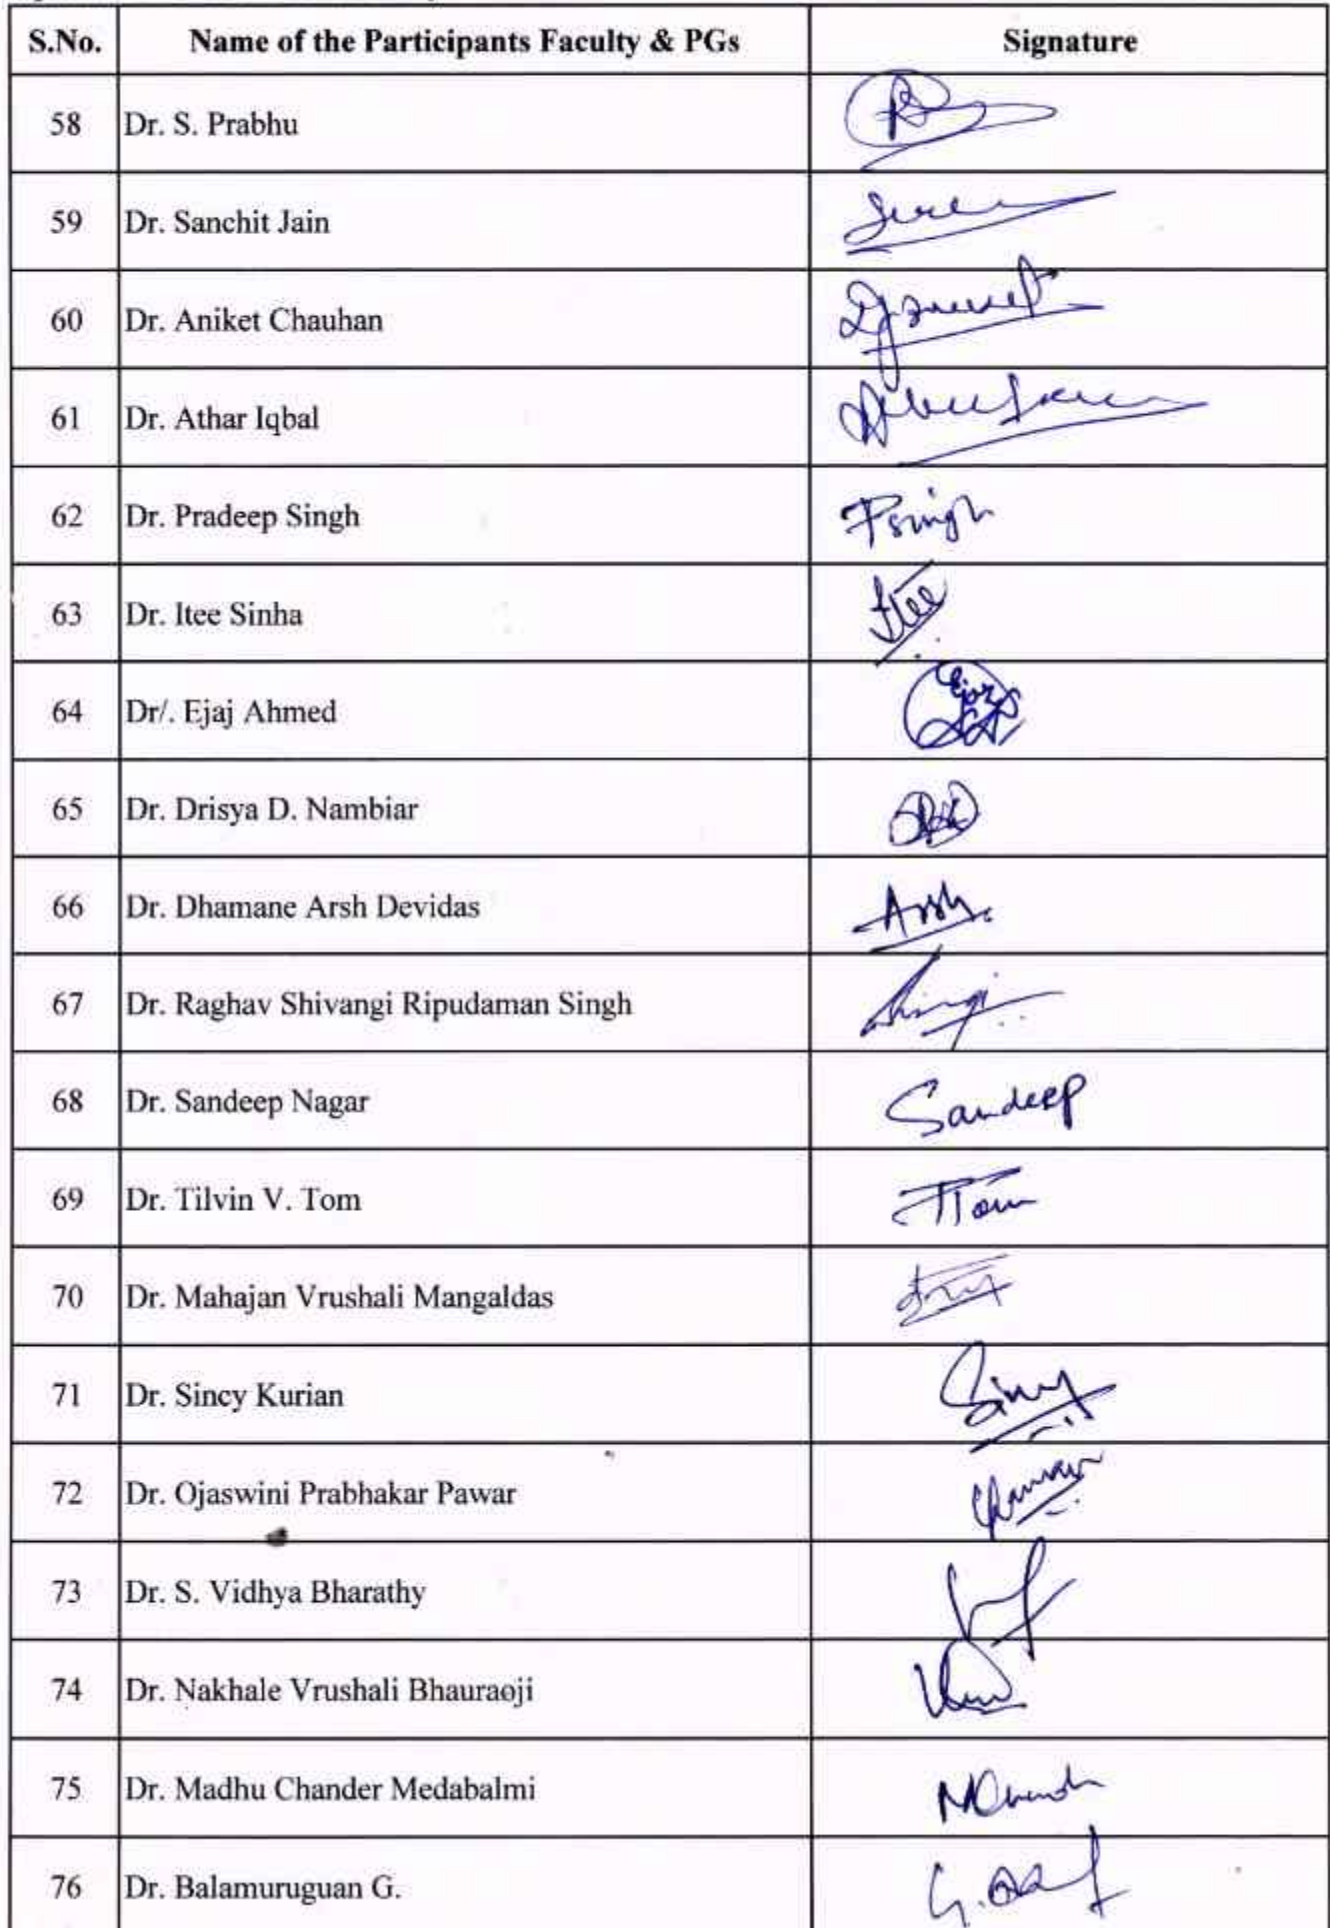 S.No. Name of the Participants Faculty & PGs Signature
58 Dr. S. Prabhu
59 Dr. Sanchit Jain
60 Dr. Aniket Chauhan
61 Dr. Athar Iqbal
62 Dr. Pradeep Singh Psingh
63 Dr. Itee Sinha Itee
64 Dr/. Ejaj Ahmed
65 Dr. Drisya D. Nambiar
66 Dr. Dhamane Arsh Devidas Arsh
67 Dr. Raghav Shivangi Ripudaman Singh
68 Dr. Sandeep Nagar Sandeep
69 Dr. Tilvin V. Tom TTom
70 Dr. Mahajan Vrushali Mangaldas
71 Dr. Sincy Kurian Sincy
72 Dr. Ojaswini Prabhakar Pawar
73 Dr. S. Vidhya Bharathy
74 Dr. Nakhale Vrushali Bhauraoji
75 Dr. Madhu Chander Medabalmi
76 Dr. Balamuruguan G.